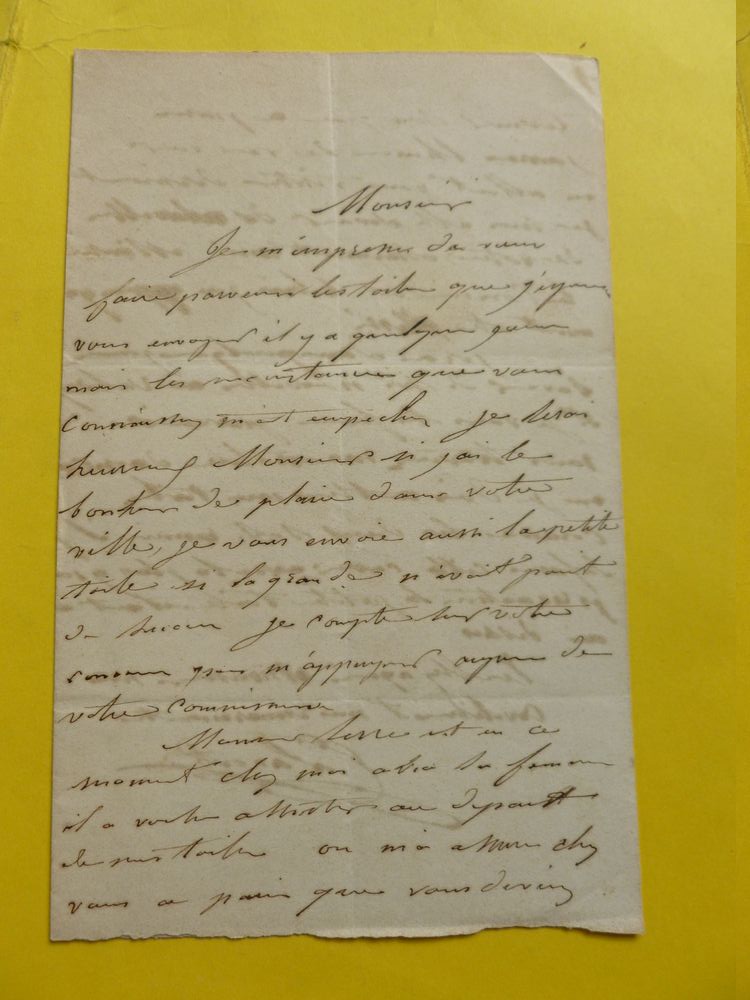 Monsieur
Je m'empresse de vous
faire parvenir les toiles que j'
vous envoyer il y a quelque jours
mais les circonstances que vous
connaissez m'ont empecher je serai
heureux Monsieur si j'ai le
bonheur de plaire dans votre
ville, je vous envoie aussi la petite
toile si la grande n'avait point
de succes je compte sur votre
concour pour m'appuyer aupres de
votre commission
Monsieur est en ce
moment chez moi avec sa femme
il a voulu assister au depart
de mes toiles on m'a assure chez
vous a paris que vous deviez